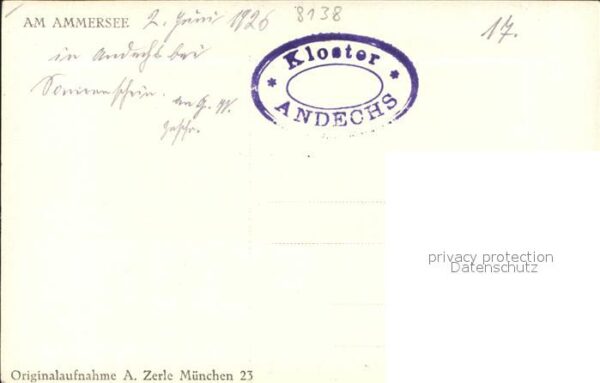 AM AMMERSEE 2. Juni 1926 8138
17.
in Andechs bei
Sonnenschein. an G. W.
geschr.
* Kloster *
ANDECHS
privacy protection
Datenschutz
Originalaufnahme A. Zerle München 23